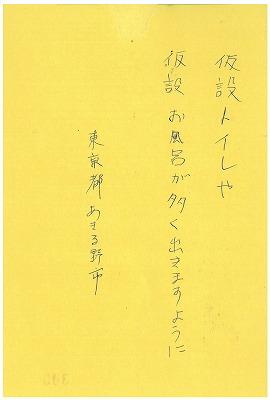 仮設トイレや
仮設 お風呂が多く出きますように
東京都 あきる野市